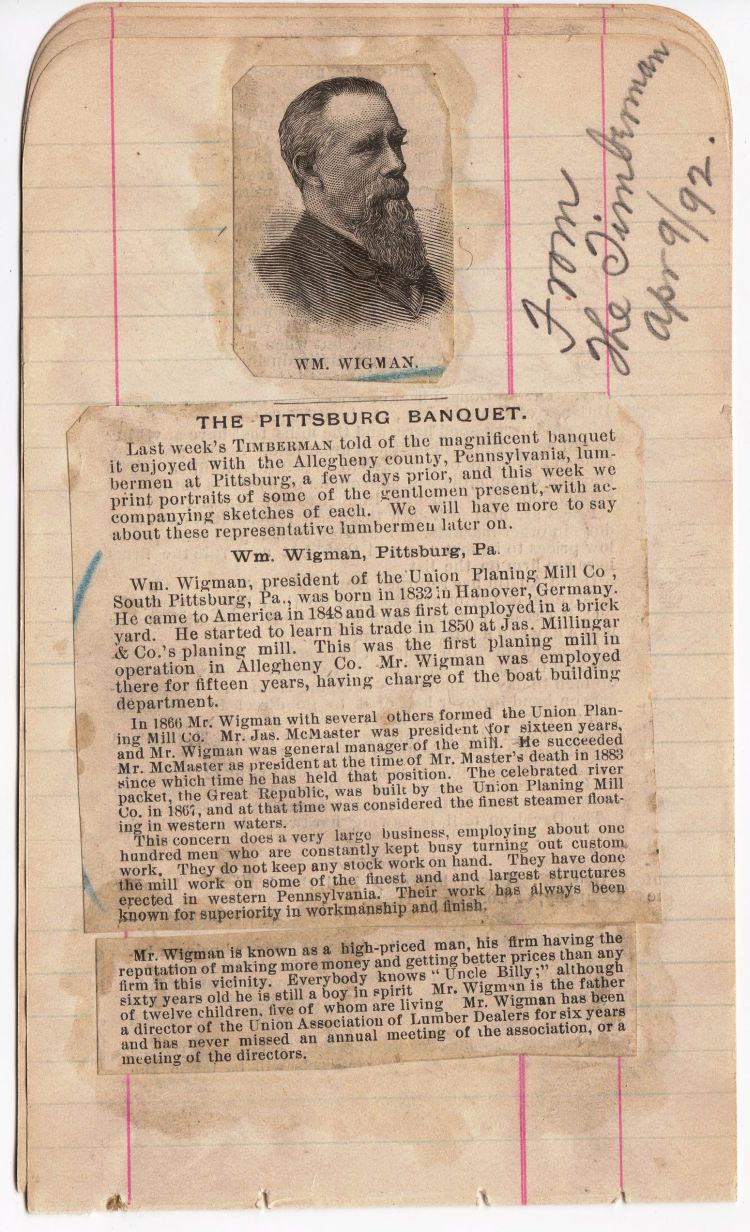 WM. WIGMAN.
From
The Timberman
Apr 9/92.
THE PITTSBURG BANQUET.
Last week's TIMBERMAN told of the magnificent banquet
it enjoyed with the Allegheny county, Pennsylvania, lum-
bermen at Pittsburg, a few days prior, and this week we
print portraits of some of the gentlemen present, with ac-
companying sketches of each. We will have more to say
about these representative lumbermen later on.
Wm. Wigman, Pittsburg, Pa.
Wm. Wigman, president of the Union Planing Mill Co ,
South Pittsburg, Pa., was born in 1832 in Hanover, Germany.
He came to America in 1848 and was first employed in a brick
yard. He started to learn his trade in 1850 at Jas. Millingar
& Co.'s planing mill. This was the first planing mill in
operation in Allegheny Co. Mr. Wigman was employed
there for fifteen years, having charge of the boat building
department.
In 1866 Mr. Wigman with several others formed the Union Plan-
ing Mill Co. Mr. Jas. McMaster was president for sixteen years,
and Mr. Wigman was general manager of the mill. He succeeded
Mr. McMaster as president at the time of Mr. Master's death in 1883
since which time he has held that position. The celebrated river
packet, the Great Republic, was built by the Union Planing Mill
Co. in 1867, and at that time was considered the finest steamer float-
ing in western waters.
This concern does a very large business, employing about one
hundred men who are constantly kept busy turning out custom
work. They do not keep any stock work on hand. They have done
the mill work on some of the finest and and largest structures
erected in western Pennsylvania. Their work has always been
known for superiority in workmanship and finish.
Mr. Wigman is known as a high-priced man, his firm having the
reputation of making more money and getting better prices than any
firm in this vicinity. Everybody knows "Uncle Billy;" although
sixty years old he is still a boy in spirit Mr. Wigman is the father
of twelve children, five of whom are living Mr. Wigman has been
a director of the Union Association of Lumber Dealers for six years
and has never missed an annual meeting of the association, or a
meeting of the directors.